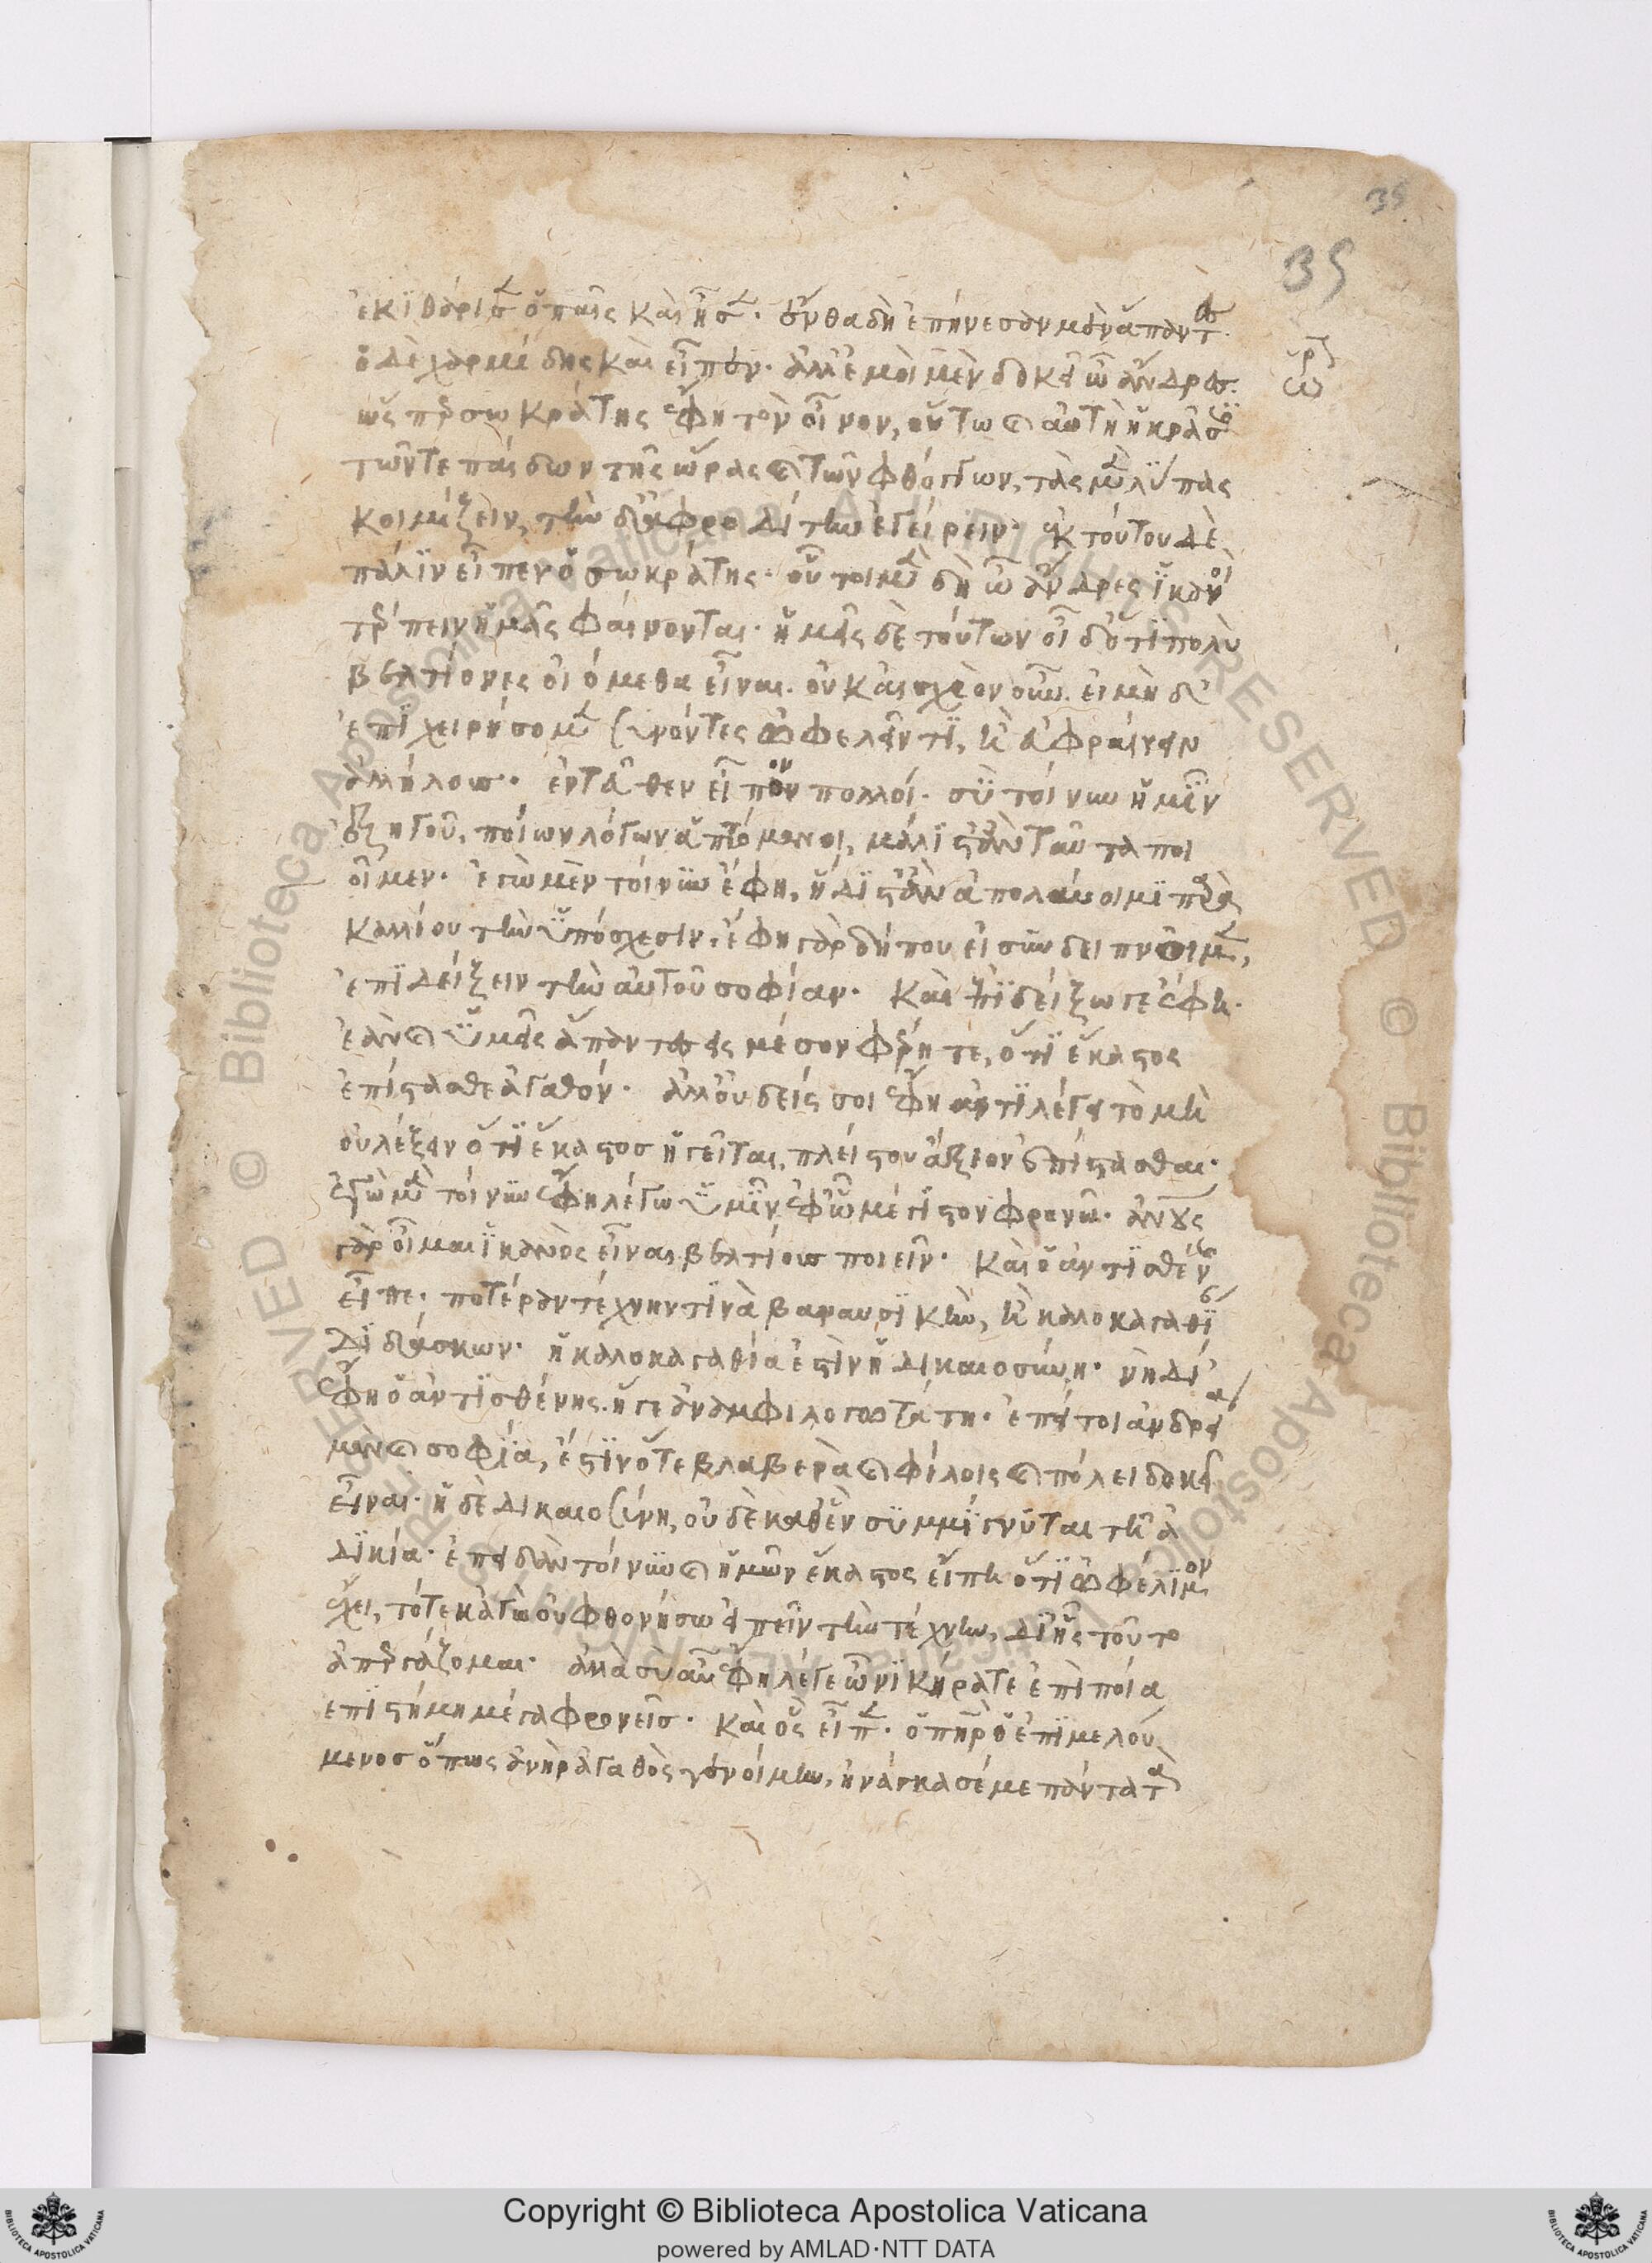 35
35
ἐκιθάρισεν ὁ παῖς καὶ ᾖσεν. ἔνθα δὴ ἐπήνεσαν μὲν ἅπαντες.
ὁ δὲ χαρμίδης καὶ εἶπεν. ἀλλ' ἐμοὶ μὲν δοκεῖ ὦ ἄνδρες.
ὥσπερ σωκράτης ἔφη τὸν οἶνον, οὕτω καὶ αὕτη ἡ κρᾶσις
τῶν τε παίδων τῆς ὥρας καὶ τῶν φθόγγων, τὰς μὲν λύπας
κοιμίζειν, τὴν δ' ἀφροδίτην ἐγείρειν. ἐκ τούτου δὲ
πάλιν εἶπεν ὁ σωκράτης. οὗτοι μὲν δὴ ὦ ἄνδρες ἱκανοὶ
τέρπειν ἡμᾶς φαίνονται. ἡμεῖς δὲ τούτων οἶδ' ὅτι πολὺ
βελτίονες οἰόμεθα εἶναι. οὐκ αἰσχρὸν οὖν. εἰ μὴ δ'
ἐπιχειρήσομεν συνόντες ὠφελεῖν τι, ἢ εὐφραίνειν
ἀλλήλους. ἐντεῦθεν εἶπον πολλοί. σὺ τοίνυν ἡμῖν
ἐξηγοῦ, ποίων λόγων ἁπτόμενοι, μάλιστ' ἂν ταῦτα ποι
οῖμεν. ἐγὼ μὲν τοίνυν ἔφη, ἥδιστ' ἂν ἀπολαύοιμι παρὰ
καλλίου τὴν ὑπόσχεσιν. ἔφη γὰρ δήπου εἰ συνδειπνοῖμεν,
ἐπιδείξειν τὴν αὐτοῦ σοφίαν. καὶ ἐπιδείξω γε ἔφη.
ἐὰν καὶ ὑμεῖς ἅπαντες εἰς μέσον φέρητε, ὅτι ἕκαστος
ἐπίστασθε ἀγαθόν. ἀλλ' οὐδείς σοι ἔφη ἀντιλέγει τὸ μὴ
οὐ λέξειν ὅτι ἕκαστος ἡγεῖται, πλείστου ἄξιον ἐπίστασθαι.
ἐγὼ μὲν τοίνυν ἔφη λέγω ὑμῖν ἐφ' ᾧ μέγιστον φρονῶ. ἀνους
γὰρ οἶμαι ἱκανὸς εἶναι βελτίους ποιεῖν. καὶ ὁ ἀντισθένης
εἶπε. πότερον τέχνην τινὰ βαναυσικὴν, ἢ καλοκαγαθίαν
διδάσκων. ἡ καλοκαγαθία ἐστὶν ἡ δικαιοσύνη. νὴ δί'
ἔφη ὁ ἀντισθένης. ἥ γε ἀναμφιλογωτάτη. ἐπεί τοι ἀνδρεία
μὲν καὶ σοφία, ἔστιν ὅτε βλαβερὰ καὶ φίλοις καὶ πόλει δοκεῖ
εἶναι. ἡ δὲ δικαιοσύνη, οὐδὲ καθ' ἓν συμμίγνυται τῇ ἀ
δικία. ἐπειδὰν τοίνυν καὶ ἡμῶν ἕκαστος εἴπῃ ὅτι ὠφέλιμον
ἔχει, τότε κἀγὼ οὐ φθονήσω εἰπεῖν τὴν τέχνην, δι' ἧς τοῦτο
ἀπεργάζομαι. ἀλλὰ σὺ αὖ ἔφη λέγε ὦ νικήρατε ἐπὶ ποία
ἐπιστήμη μέγα φρονεῖς. καὶ ὃς εἶπεν. ὁ πατὴρ ὁ ἐπιμελού
μενος ὅπως ἀνὴρ ἀγαθὸς γενοίμην, ἠνάγκασέ με πάντα τὰ
Copyright © Biblioteca Apostolica Vaticana
powered by AMLAD·NTT DATA